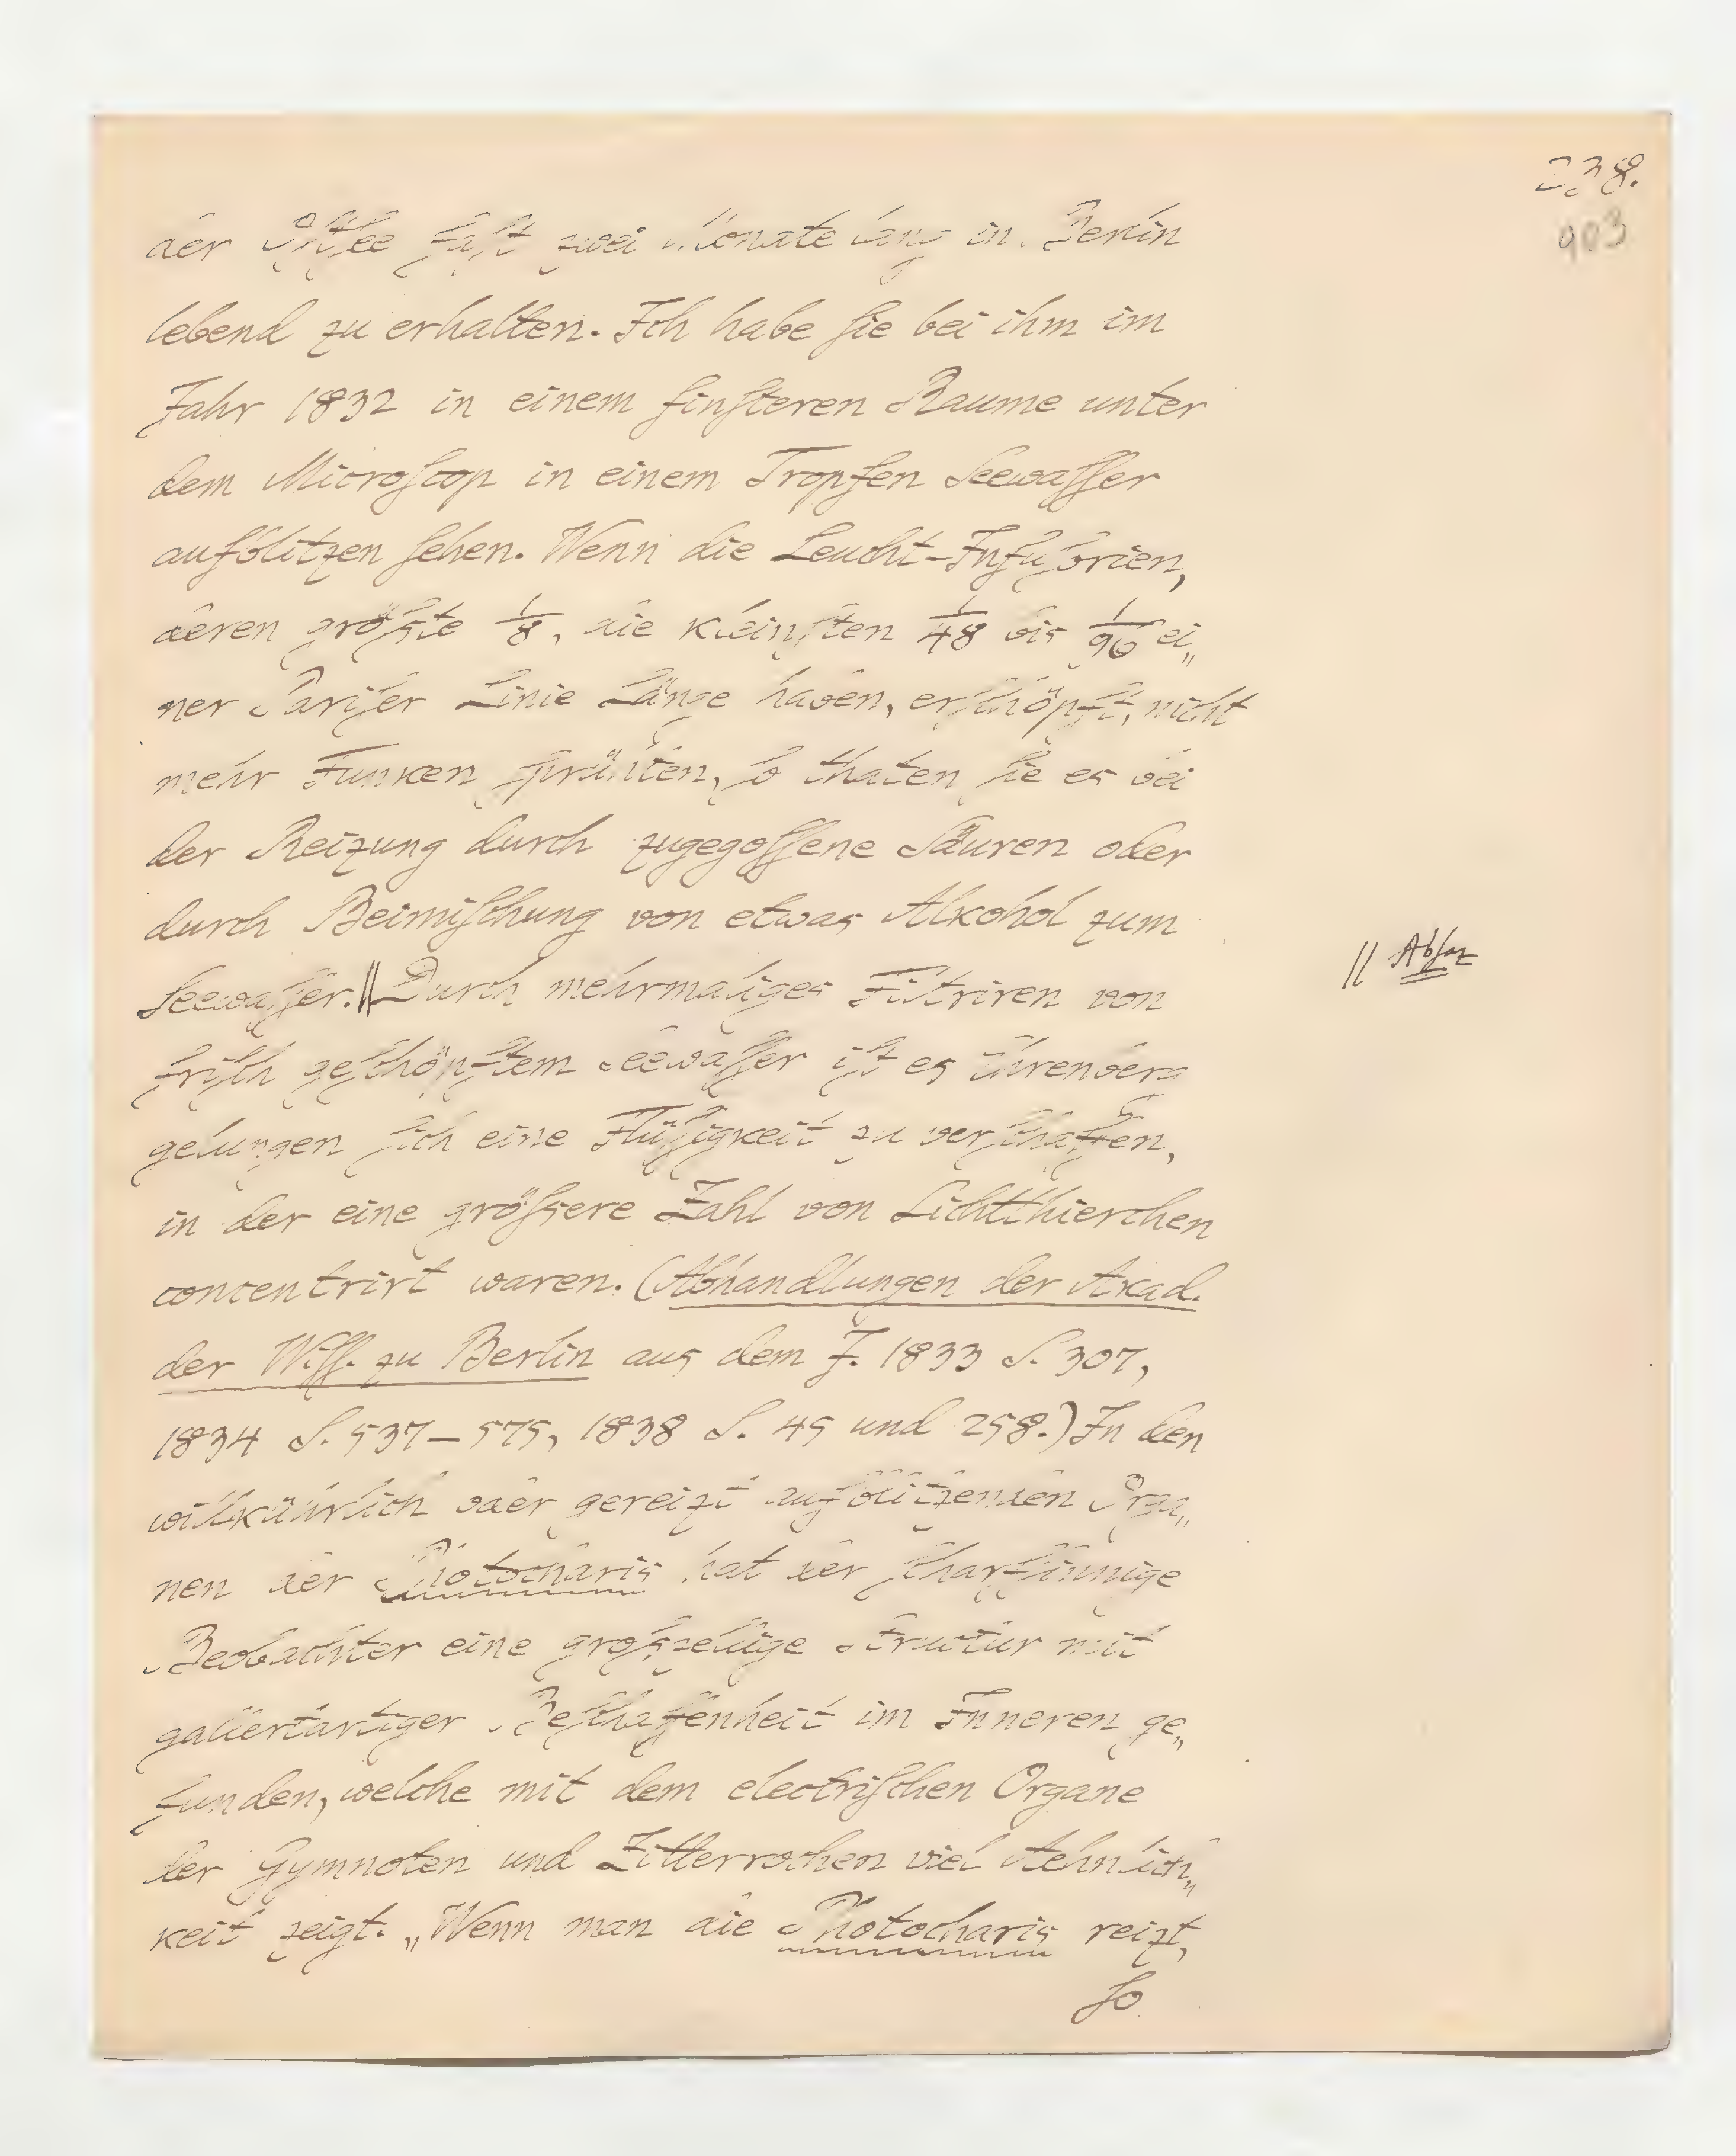 238.
903
der Oſtſee faſt zwei Monate lang in Berlin
lebend zu erhalten. Ich habe ſie bei ihm im
Jahr 1832 in einem finſteren Raume unter
dem Microſcop in einem Tropfen Seewaſſer
aufblitzen ſehen. Wenn die Leucht-Infuſorien,
deren größte 1/8, die kleinſten 1/48 bis 1/96 ei„
ner Pariſer Linie Länge haben, erſchöpft, nicht
mehr Funken ſprühten, ſo thaten ſie es bei
der Reizung durch zugegoſſene Säuren oder
durch Beimiſchung von etwas Alkohol zum
Seewaſſer.|| Durch mehrmaliges Filtriren von
|| Abſaz
friſch geſchöpftem Seewaſſer iſt es Ehrenberg
gelungen ſich eine Flüſſigkeit zu verſchaffen,
in der eine gröſsere Zahl von Lichtthierchen
concentrirt waren. (Abhandlungen der Akad.
der Wiſſ. zu Berlin aus dem J. 1833 S. 307,
1834 S. 537–575, 1838 S. 45 und 258.) In den
willkührlich oder gereizt aufblitzenden Orga„
nen der Photocharis hat der ſcharfſinnige
Beobachter eine groſszellige Structur mit
gallertartiger Beſchaffenheit im Inneren ge„
funden, welche mit dem electriſchen Organe
der Gymnoten und Zitterrochen viel Aehnlich„
keit zeigt. „Wenn man die Photocharis reizt,
ſo